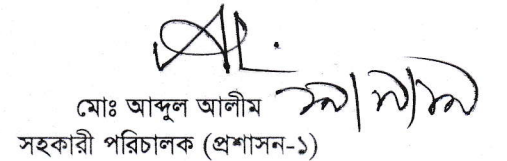 মোঃ আব্দুল আলীম
সহকারী পরিচালক (প্রশাসন-১)